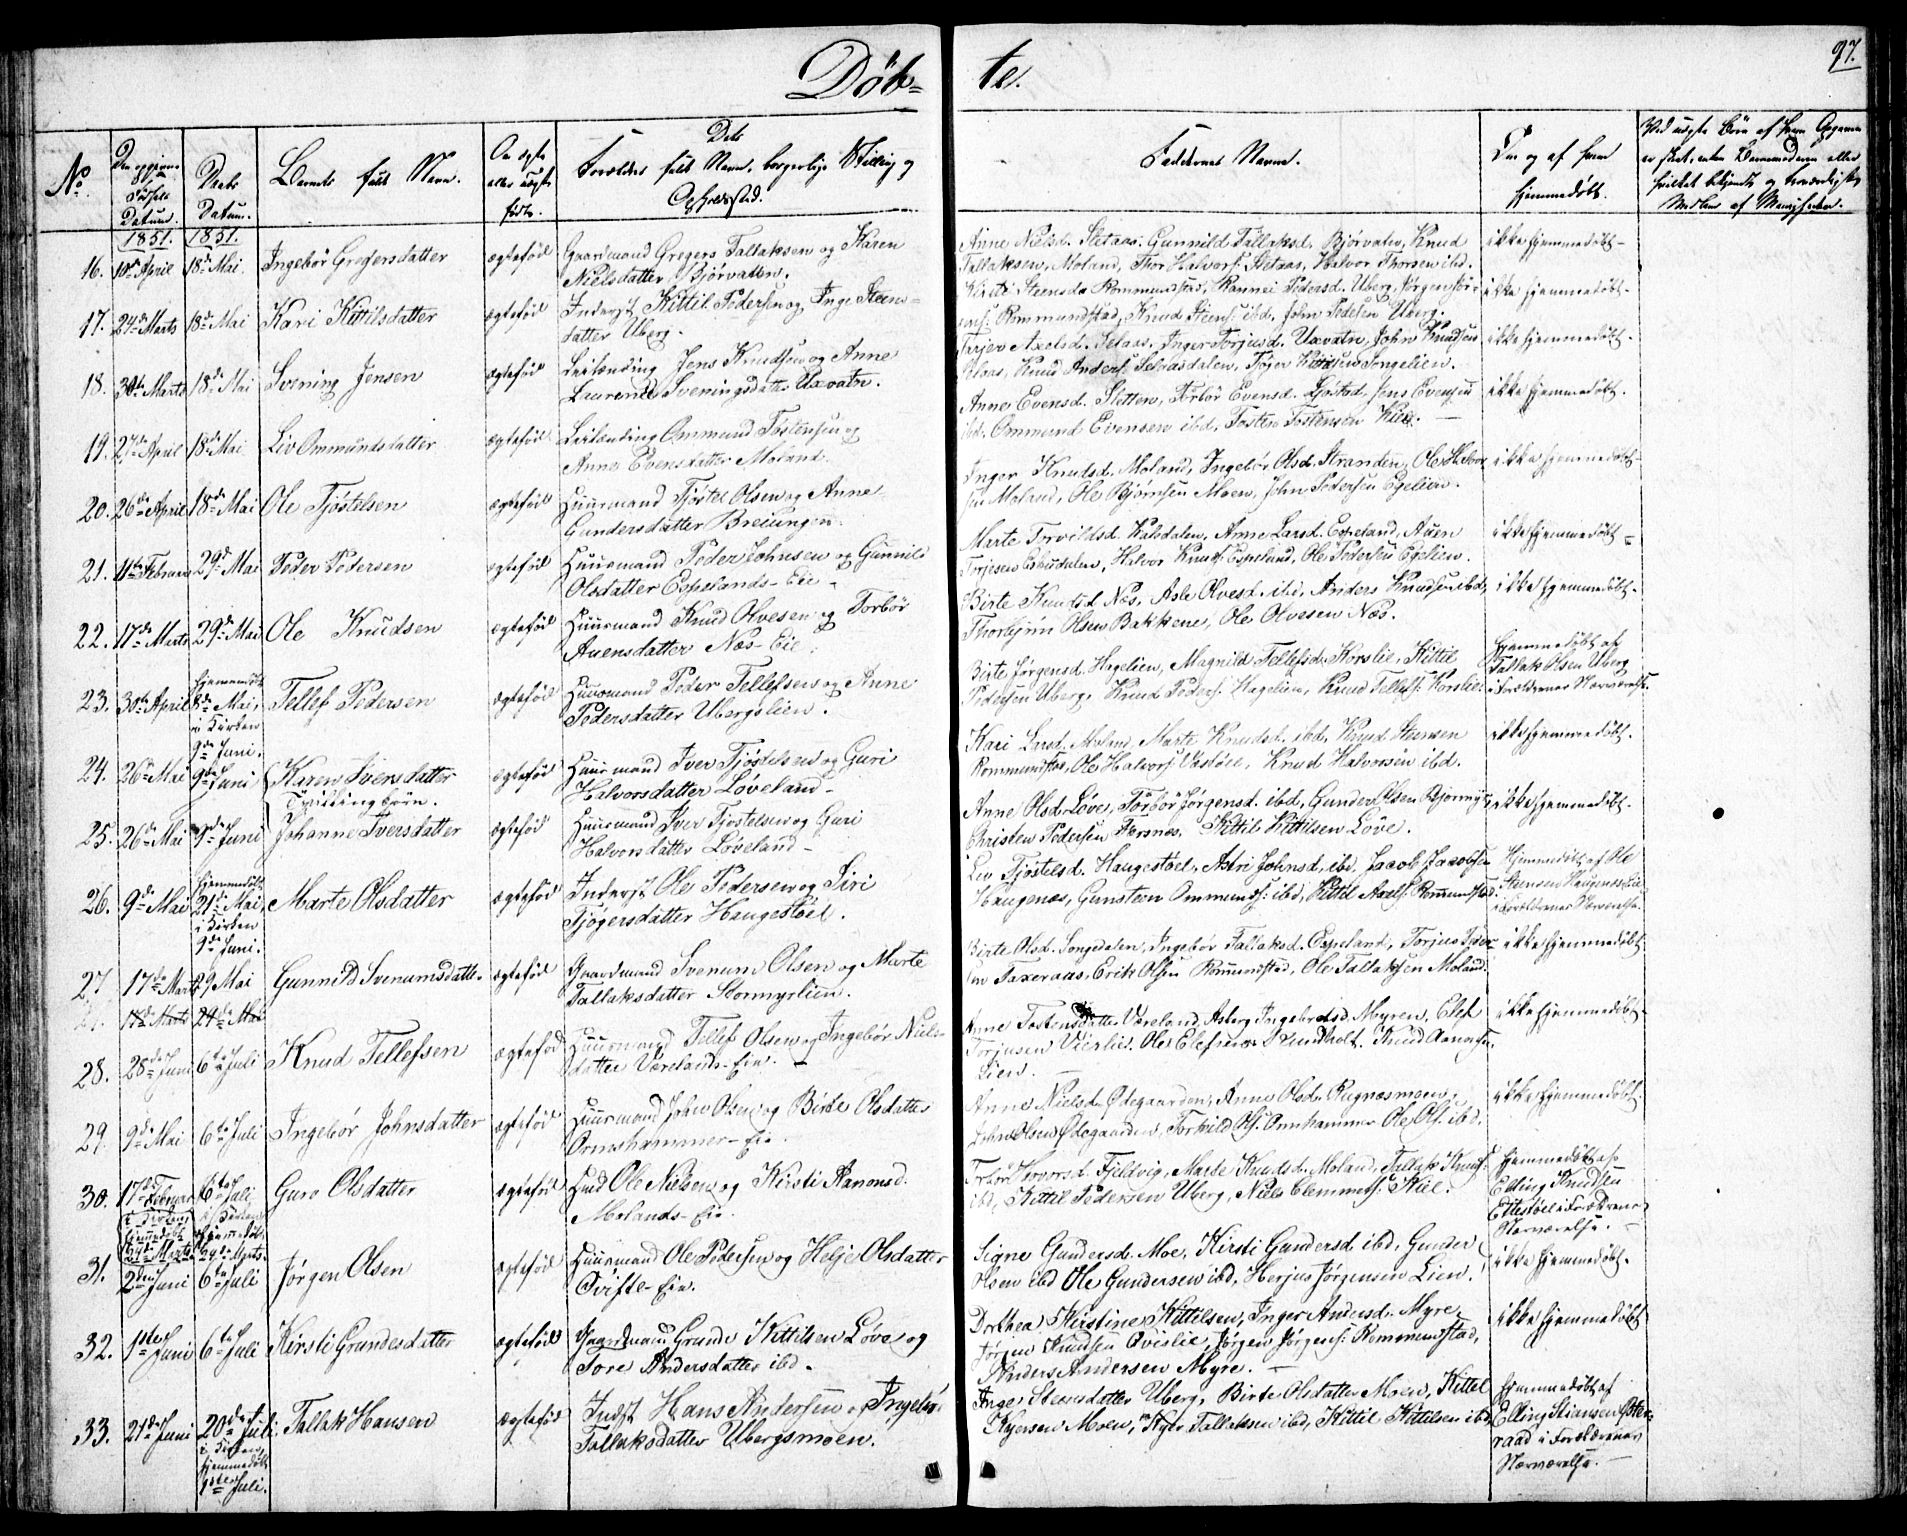 Døb=
te.
97.
No.
Den opgivne
Fødsels
Datum.
Daabs
Datum.
Barnets fulde Navn.
Om ægte
eller uægte
født.
Dets
Forældres fulde Navn, borgerlige Stilling og
Opholdssted.
Faddernes Navne.
Om og af hvem
hjemmedøbt.
Ved uægte Børn af hvem Opgaven
er skeet, enten Barnemoderen eller
hvilket bekjendt og troværdigt
Medlem af Menigheden.
1851. 1851.
16. 10de April 18de Mai. Ingebør Gregersdatter ægtefød Gaardmand Gregers Tallaksen og Karen
Nielsdatter Bjørvatten.
Anne Nielsd. Stetaas. Gunnild Tallaksd. Bjørvatn, Knud
Tallaksen, Moland, Thor Halvors. Stetaas, Halvor Thorsen ibd.
ikke hjemmedøbt-
17. 24de Marts 18de Mai Kari Kittilsdatter ægtefød Inderst Kittil Pedersen og Inge Steens=
datter Uberg.
Kirsti Steensda Rommundstad, Rannei Pedersd. Uberg, Jørgen Jør=
gens. Rommundstad, Knud Steens. ibd, John Pedersen Uberg.
ikke hjemmedøbt-
18. 30te Marts 18de Mai Svening Jensen ægtefød Leilænding Jens Knudsen og Anne
Laurense Sveningsdatter Uxvatn.
Tarjer Axelsd. Selaas. Inger Torjusd. Uxvatn, John Knudsen
Selaas, Knud Anders. Selaasdalen, Tjøger Kittilsen Songelien.
ikke hjemmedøbt-
19. 27de April 18de Mai Liv Ommundsdatter ægtefød Leilænding Ommund Tostensen og
Anne Evensdatter Moland.
Anne Evensd. Sletten, Torbør Evensd. Gjøstad, Jens Evensen
ibd. Ommund Evensen ibd, Tosten Tostensen Kile.
ikke hjemmedøbt.
20. 26de April 18de Mai Ole Tjøstelsen ægtefød Huusmand Tjøstel Olsen og Anne
Gundersdatter Breiungen.
Inger Knudsd. Moland, Ingebør Olsd. Stranden, Ole
sen Moland, Ole Bjørnsen Moen, John Pedersen Egelien.
ikke hjemmedøbt-
21. 11te Februar 29de Mai Peder Pedersen ægtefød Huusmand Peder Johnsen og Gunnild
Olsdatter Espelands-Eie-
Marte Torvildsd. Kalsdalen, Anne Larsd. Espeland, Auen
Torjusen Eskedalen, Halvor Knuds. Espeland, Ole Pedersen Egelien.
ikke hjemmedøbt-
22. 17de Marts 29de Mai Ole Knudsen ægtefød Huusmand Knud Olvesen og Torbør
Auensdatter Næs-Eie.
Birte Knudsd. Næs, Asle Olvesd. ibd, Anders Knudsen ibd,
Thorbjørn Olsen Bakkene, Ole Olvesen Næs.
ikke hjemmedøbt-
23. 30te April Hjemmedøbt
8de Mai,
i Kirken
9de Juni. Tellef Pedersen ægtefød Huusmand Peder Tellefsen og Anne
Pedersdatter Ubergslien.
Birte Jørgensd. Hagelien, Magnild Tellefsd. Korslie, Kittil
Pedersen Uberg, Knud Peders. Hagelien, Knud Tellefs. Korslie.
Hjemmedøbt af
Tallak Olsen Uberg
i Forældrenes Nærværelse.
24. 26de Mai 9de Juni Karen Iversdatter
Tvillingbørn. ægtefød Huusmand Iver Tjøstelsen og Guri
Halvorsdatter Løveland-
Kari Larsd. Moland, Marte Knudsd. ibd, Knud Steensen
Rommundstad, Ole Halvors. Vestøl, Knud Halvorsen ibd.
ikke hjemmedøbt.
25. 26de Mai 9de Juni Johanne Iversdatter ægtefød Huusmand Iver Tjostelsen og Guri
Halvorsdatter Løveland-
Anne Olsd. Løve, Torbør Jørgensd. ibd, Gunder Olsen Bjormyr,
Christen Pedersen Færsnes. Kittil Kittilsen Løve.
ikke hjemmedøbt-
26. 9de Mai Hjemmedøbt
21de Mai,
i Kirken
9de Juni. Marte Olsdatter ægtefød Inderst Ole Pedersen og Siri
Tjøgersdatter Haugestøel.
Liv Tjøstelsd. Haugestøel, Astri Johnsd. ibd, Jacob Jacobsen
Haugenæs, Gunsteen Ommunds. ibd, Kittil Axels. Rommundstad.
Hjemmedøbt af Ole
Steensen Haugenæs-Eie
i Forældrenes Nærværelse.
27. 17de Marts 29 Mai Gunnild Svenumsdatter ægtefød Gaardmand Svenum Olsen og Marte
Tallaksdatter Stormyrlien.
17de Marts 24de Mai
Birte Olsd. Songedalen, Ingebør Tallaksd. Espeland, Torjus Peder=
sen Taxeraas, Erik Olsen Rommundstad, Ole Tallaksen Moland.
ikke hjemmedøbt
28. 28de Juni 6te Juli Knud Tellefsen ægtefød Huusmand Tellef Olsen og Ingebør Niels=
datter Værelands-Eie.
Anne Tostensdatter Væreland, Asberg Ingebretsd. Myren, Elef
Torjusen Vierlie. Ole Elefsen Lundholt. Knud Aanonsen
Lien.
ikke hjemmedøbt-
29. 9de Mai 6te Juli Ingebør Johnsdatter ægtefød Huusmand John Olsen og Birte Olsdatter
Ormshammer-Eie.
Anne Nielsd. Ødegaarden, Anne Olsd. Rugnæsmoen,
John Olsen Ødegaarden, Torkild Ols. Ormhammer Ole Ols. ibd.
ikke hjemmedøbt.
30. 17de Februar 6te Juli
i Kirken
Hjemmedøbt
24de Marts Guro Olsdatter ægtefød Huusd Ole Nielsen og Kirsti Aanonsd.
Molands-Eie.
Torbør Hovorsd. Fjeldvig, Marte Knudsd. Moland, Tallak Knuds.
ibd, Kittil Pedersen Uberg, Niels Clemmets. Kile.
Hjemmedøbt af
Elling Knudsen
Ettestøel i Forældrenes
Nærværelse.
31. 2den Juni 6te Juli Jørgen Olsen ægtefød Huusmand Ole Pedersen og Helje Olsdatter
Tvifte-Eie.
Signe Gundersd. Moe, Kirsti Gundersd ibd, Gunder
Olsen ibd Ole Gundersen ibd, Herjus Jørgensen Lien.
ikke hjemmedøbt.
32. 1ste Juni 6te Juli Kirsti Grundesdatter ægtefød Gaardmand Grunde Kittilsen Løve og
Tore Andersdatter ibd.
Dorthea Kirstine Kittilsen, Inger Andersd. Myre,
Jørgen Knudsen Qvislie, Jørgen Jørgens. Rommundstad,
Anders Andersen Myre.
ikke hjemmedøbt
33. 21de Juni 20de Juli
i Kirken,
hjemmedøbt
1ste Juli. Tallak Hansen ægtefød Indst Hans Andersen og Ingebør
Tallaksdatter Ubergsmoen.
Inge Steensdatter Uberg, Birte Olsdatter Moen, Kittel
Kjersen Moen, Tallaksen ibd, Kittil Kittilsen ibd
Hjemmedøbt af
Elling Stiansen Øster=
raad i Forældrenes
Nærværelse.